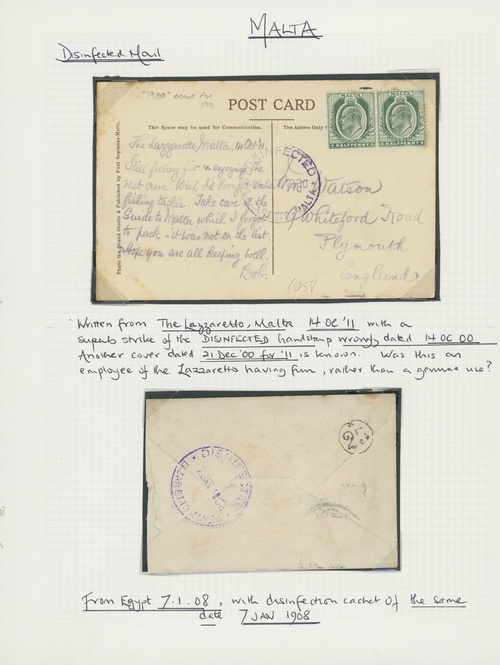 MALTA
Disinfected Mail
"1900" error for
1911
POST CARD
This Space may be used for Communication.
The Adress Only
MALTA MALTA
HALFPENNY HALFPENNY
Photo the Grand Studio & Published by Post Sepiatone-Malta.
The Lazzaretto, Malta, 14 Oct 11.
Still feeling fit & enjoying the
rest cure. Wish I'd brought some
fishing tackle. Take care of the
Guide to Malta which I forgot
to pack - it was not on the list.
Hope you are all keeping well.
Bob.
DISINFECTED
MALTA
Watson
9 Whiteford Road
Plymouth
England
1058
Written from The Lazzaretto, Malta 14 OC '11 with a
superb strike of the DISINFECTED handstamp wrongly dated 14 OC 00
Another cover dated 21 Dec '00 for '11 is known. Was this an
employee of the Lazzaretto having fun, rather than a genuine use?
7 JAN 1908
2
From Egypt 7.1.08, with disinfection cachet of the same
date 7 JAN 1908